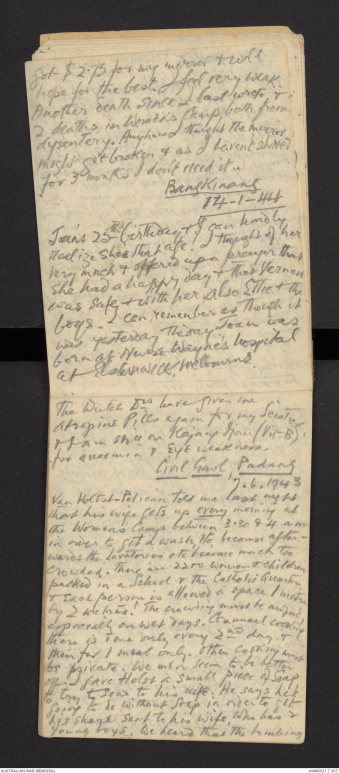 Got $2.75 for my mirror & will
hope for the best. I feel very weak.
Another death since I last wrote &
2 deaths in Women's Camp, both from
dysentery. Anyhow I thought the mirror
might get broken & as I havent shaved
for 3 months I dont need it.
Bangkinang
14-1-44
Joan's 25th birthday & I can hardly
realize shes that age! I thought of her
very much & offered up a prayer that
she had a happy day & that Vernon
was safe & with her, also Effie & the
boys. I can remember as though it
was yesterday the day Joan was
born at Nurse Wayne's hospital
at Elsternwick, Melbourne
The Dutch Drs have given me
atropine Pills again for my Sciatica,
& I am still on Kajang Ijau (Vit-B),
for anaemia & Eye weakness.
Civil Gaol Padang
7.6.1943
Van Holtst-Pelican told me last night
that his wife gets up every morning at
the Womens Camp between 3.30 & 4 a.m
in order to get a wash etc because after-
wards the lavatories etc become much too
crowded. There are 2200 women & children
packed in a School & the Catholic Quarters
& Each person is allowed a space 1 metre
by 2 metres! The crowding must be awful
especially on wet days. Communal cooking
there is done only every 2nd day &
then for 1 meal only. Other cooking must
be private. We men seem to be better
off. I gave Holst a small piece of Soap
to try & send to his wife. He says he's
going to do without soap in order to get
his share sent to his wife, who has 2
young boys. We heard that the bombing
AUSTRALIAN WAR MEMORIAL